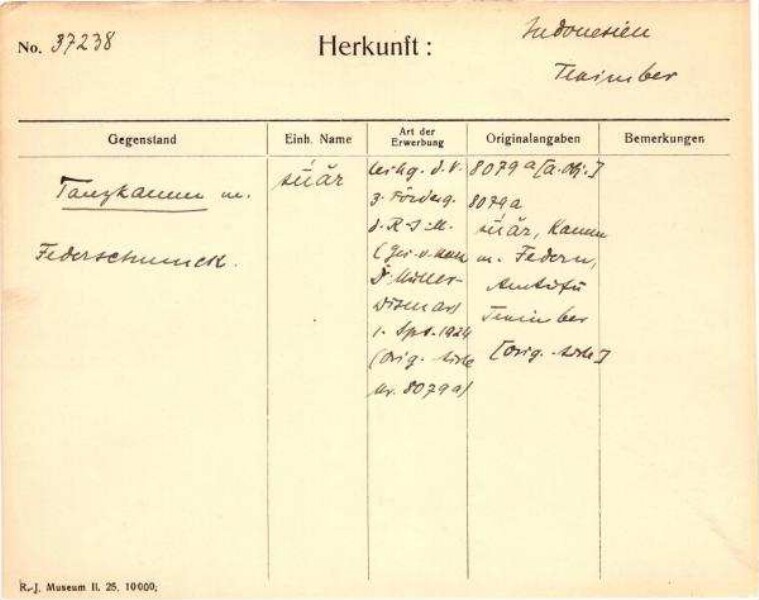 No. 37238
Herkunft:
Indonesien
Tenimber
Gegenstand
Einh. Name
Art der Erwerbung
Originalangaben
Bemerkungen
Tanzkamm m.
Federschmuck.
súăr
Leihg. d. V.
z. Förderg.
d. R-J-M.
Dr. Müller-
Wismar)
1. Spt. 1924
(Orig. Liste
Nr. 8079a)
8079a [a. Obj.]
8079a
súăr, Kamm
m. Federn,
Tenimber
[Orig. Liste]
R.-J. Museum II. 25. 10000;